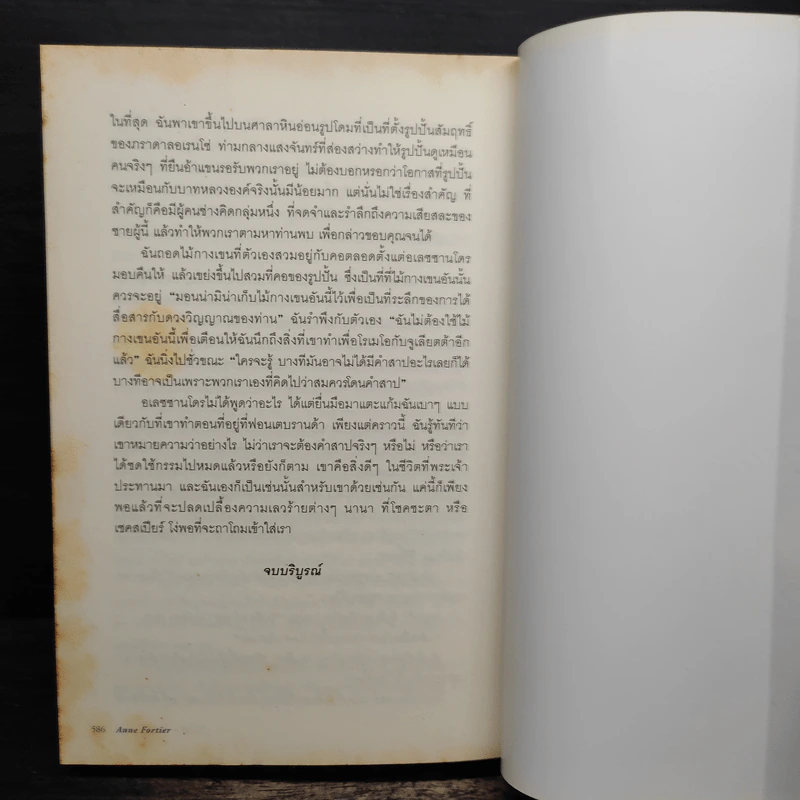 ในที่สุด ฉันพาเขาขึ้นไปบนศาลาหินอ่อนรูปโดมที่เป็นที่ตั้งรูปปั้นสัมฤทธิ์
ของภราดาลอเรนโซ่ ท่ามกลางแสงจันทร์ที่ส่องสว่างทำให้รูปปั้นดูเหมือน
คนจริงๆ ที่ยืนอ้าแขนรอรับพวกเราอยู่ ไม่ต้องบอกหรอกว่าโอกาสที่รูปปั้น
จะเหมือนกับบาทหลวงองค์จริงนั้นมีน้อยมาก แต่นั่นไม่ใช่เรื่องสำคัญ ที่
สำคัญก็คือมีผู้คนช่างคิดกลุ่มหนึ่ง ที่จดจำและรำลึกถึงความเสียสละของ
ชายผู้นี้ แล้วทำให้พวกเราตามหาท่านพบ เพื่อกล่าวขอบคุณจนได้
ฉันถอดไม้กางเขนที่ตัวเองสวมอยู่กับคอตลอดตั้งแต่อเลซซานโดร
มอบคืนให้ แล้วเขย่งขึ้นไปสวมที่คอของรูปปั้น ซึ่งเป็นที่ที่ไม้กางเขนอันนั้น
ควรจะอยู่ “มอนน่ามิน่าเก็บไม้กางเขนอันนี้ไว้เพื่อเป็นที่ระลึกของการได้
สื่อสารกับดวงวิญญาณของท่าน” ฉันรำพึงกับตัวเอง “ฉันไม่ต้องใช้ไม้
กางเขนอันนี้เพื่อเตือนให้ฉันนึกถึงสิ่งที่เขาทำเพื่อโรเมโอกับจูเลียตต้าอีก
แล้ว” ฉันนิ่งไปชั่วขณะ “ใครจะรู้ บางทีมันอาจไม่ได้มีคำสาปอะไรเลยก็ได้
บางทีอาจเป็นเพราะพวกเราเองที่คิดไปว่าสมควรโดนคำสาป”
อเลซซานโดรไม่ได้พูดว่าอะไร ได้แต่ยื่นมือมาแตะแก้มฉันเบาๆ แบบ
เดียวกับที่เขาทำตอนที่อยู่ที่ฟอนเตบรานด้า เพียงแต่คราวนี้ ฉันรู้ทันทีว่า
เขาหมายความว่าอย่างไร ไม่ว่าเราจะต้องคำสาปจริงๆ หรือไม่ หรือว่าเรา
ได้ชดใช้กรรมไปหมดแล้วหรือยังก็ตาม เขาคือสิ่งดีๆ ในชีวิตที่พระเจ้า
ประทานมา และฉันเองก็เป็นเช่นนั้นสำหรับเขาด้วยเช่นกัน แค่นี้ก็เพียง
พอแล้วที่จะปลดเปลื้องความเลวร้ายต่างๆ นานา ที่โชคชะตา หรือ
เชคสเปียร์ โง่พอที่จะถาโถมเข้าใส่เรา
จบบริบูรณ์
586 Anne Fortier